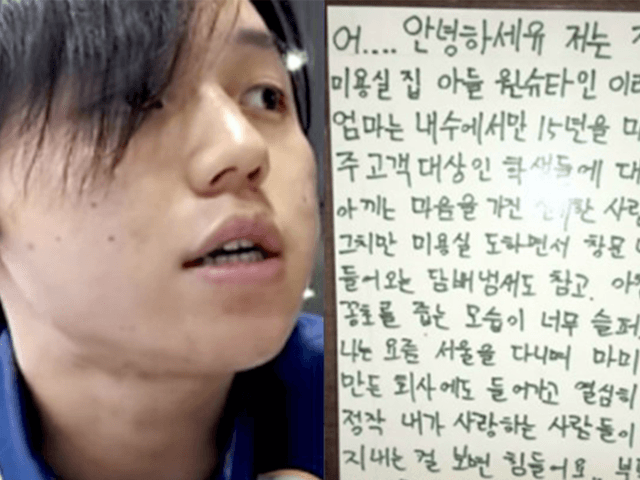 어.... 안녕하세유 저는
미용실 집 아들 원슈타인 이
엄마는 내수에서만 15년을
주고객 대상인 학생들에 대
아끼는 마음을 가진 사람
그치만 미용실 도하면서 창문
들어오는 담배냄새도 참고.
꽁초를 줍는 모습이 너무 슬퍼
나는 요즘 서울을 다니며 마미
만든 회사에도 들어가고 열심히
정작 내가 사랑하는 사람들이
지내는 걸 보면 힘들어요